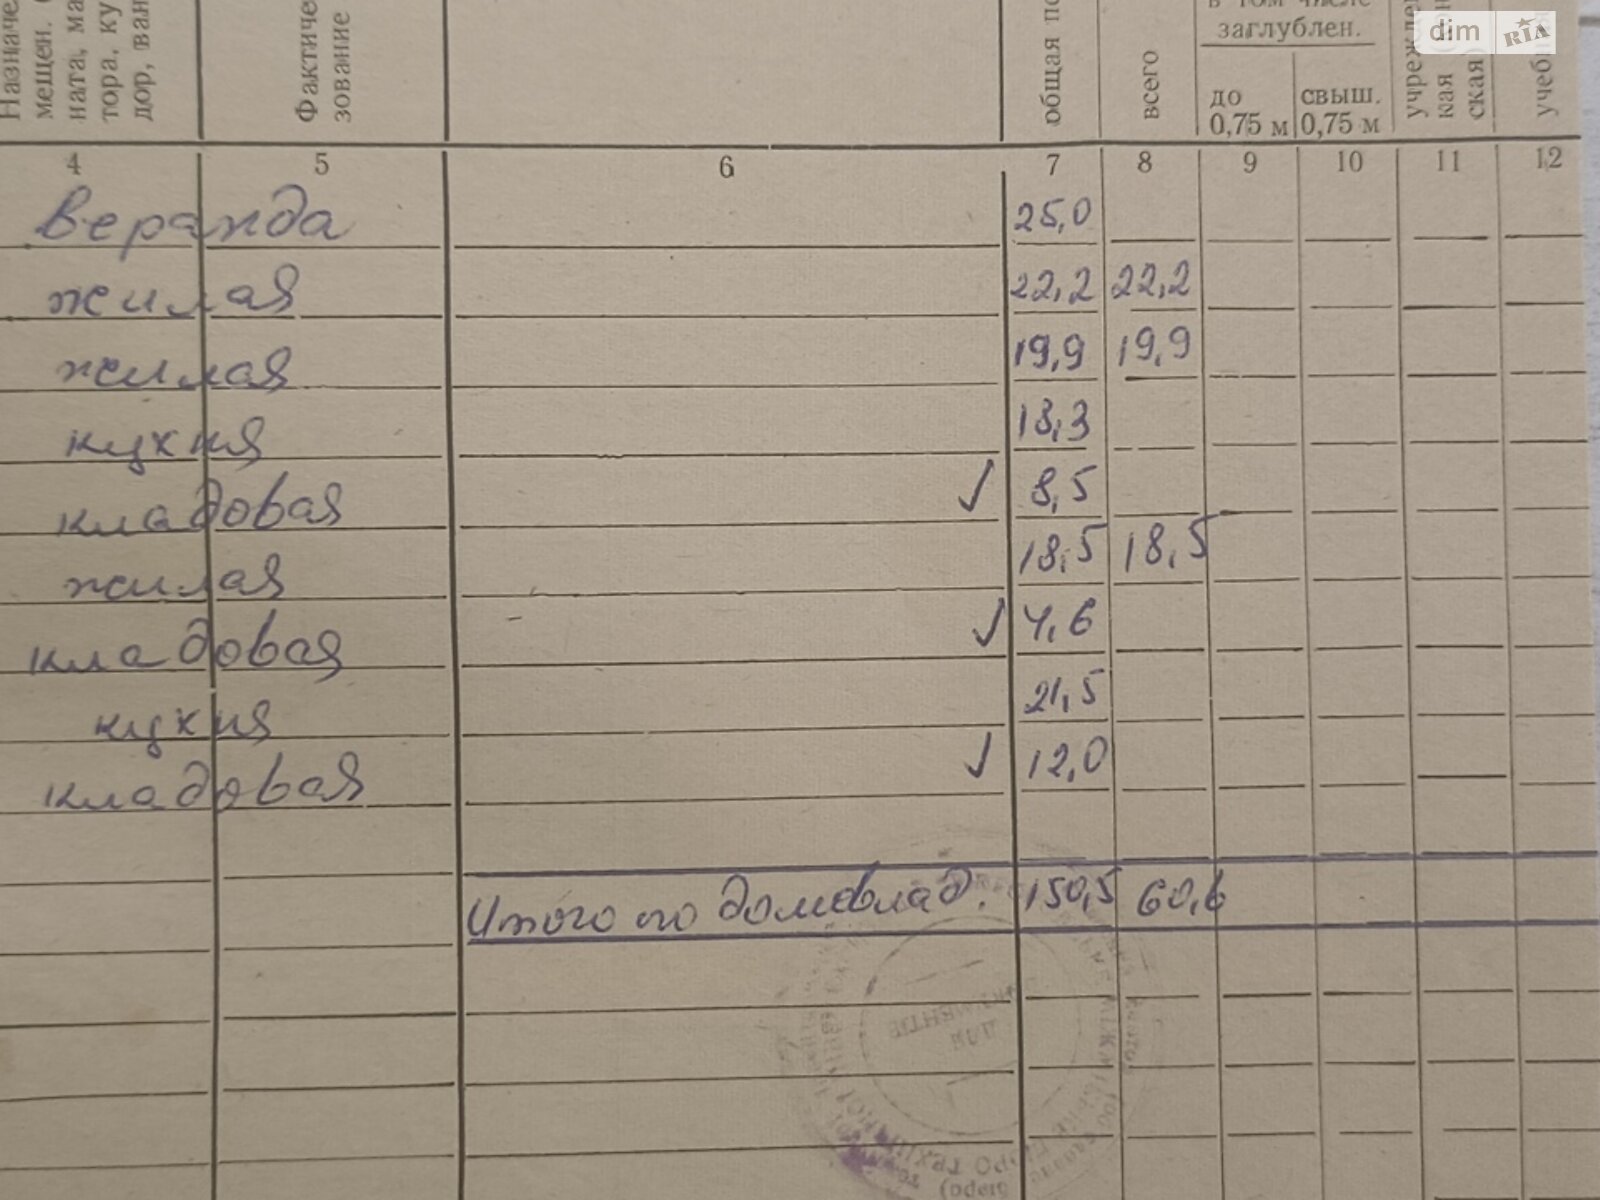 dim RIA
в том числе
заглублен.
Фактиче
зование
общая
всего
до
0,75 м
свыш.
0,75 м
4 5 6 7 8 9 10 11 12
веранда 25,0
жилая 22,2 22,2
жилая 19,9 19,9
кухня 18,3
кладовая 8,5
жилая 18,5 18,5
кладовая 4,6
кухня 21,5
кладовая 12,0
Итого по домовлад. 150,5 60,6